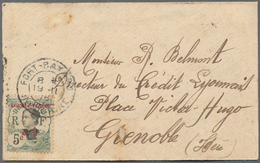 Monsieur A. Belmont
Directeur du Crédit Lyonnais
Place Victor-Hugo
Grenoble
(Isère)
FORT-BAYARD
R F
5